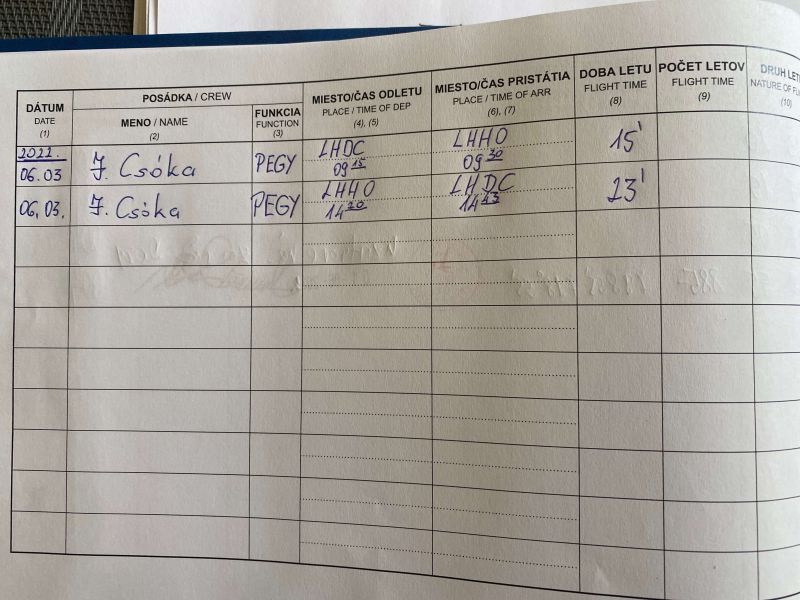 DÁTUM
DATE
(1)
POSÁDKA / CREW
MENO / NAME
(2)
FUNKCIA
FUNCTION
(3)
MIESTO/ČAS ODLETU
PLACE / TIME OF DEP
(4), (5)
MIESTO/ČAS PRISTÁTIA
PLACE / TIME OF ARR
(6), (7)
DOBA LETU
FLIGHT TIME
(8)
POČET LETOV
FLIGHT TIME
(9)
DRUH LET
NATURE OF FL
(10)
2022.
06.03 J. Csóka PEGY LHDC 09 15 LHHO 09 30 15'
06.03. J. Csóka PEGY LHHO 14 20 LHDC 14 43 23'